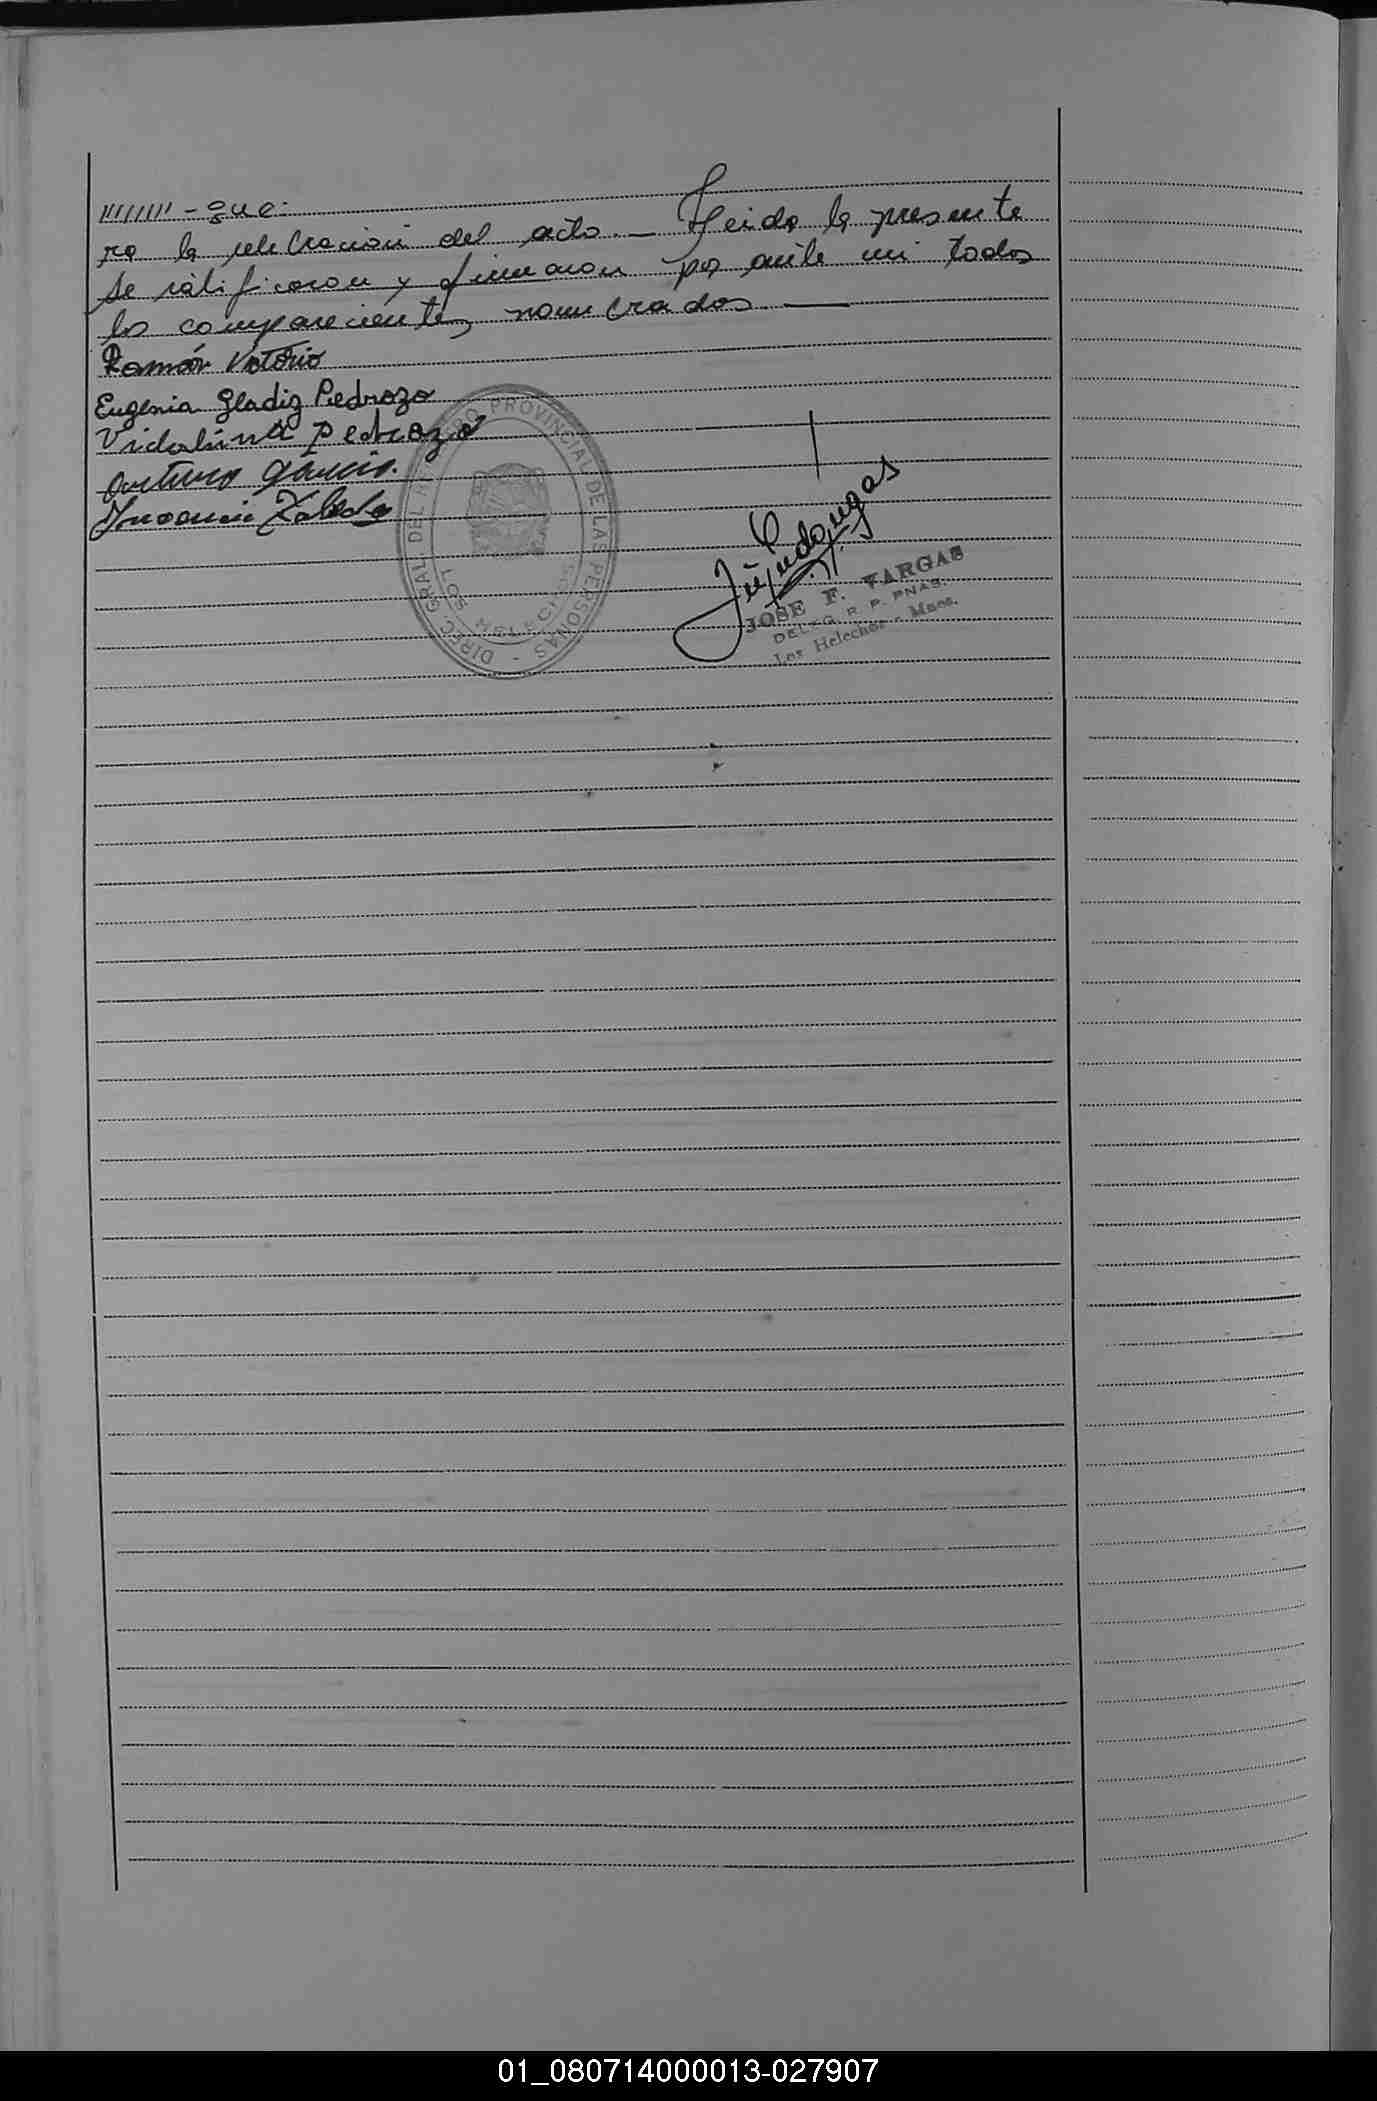 ''''''''' - gue:
ro la celebración del acto. — Leida la presente
se ratificaron y firmaron por ante mi todos
los comparecientes nombrados. ——
Ramón Vitorio
Eugenia Gladiz Pedrozo
Vidalina Pedrozo
Arturo García.
DIREC. GRAL. DEL REGISTRO PROVINCIAL DE LAS PERSONAS -
LOS HELECHOS
JOSE F. VARGAS
DELEG. R. P. PNAS.
Los Helechos - Mnes.
01_080714000013-027907